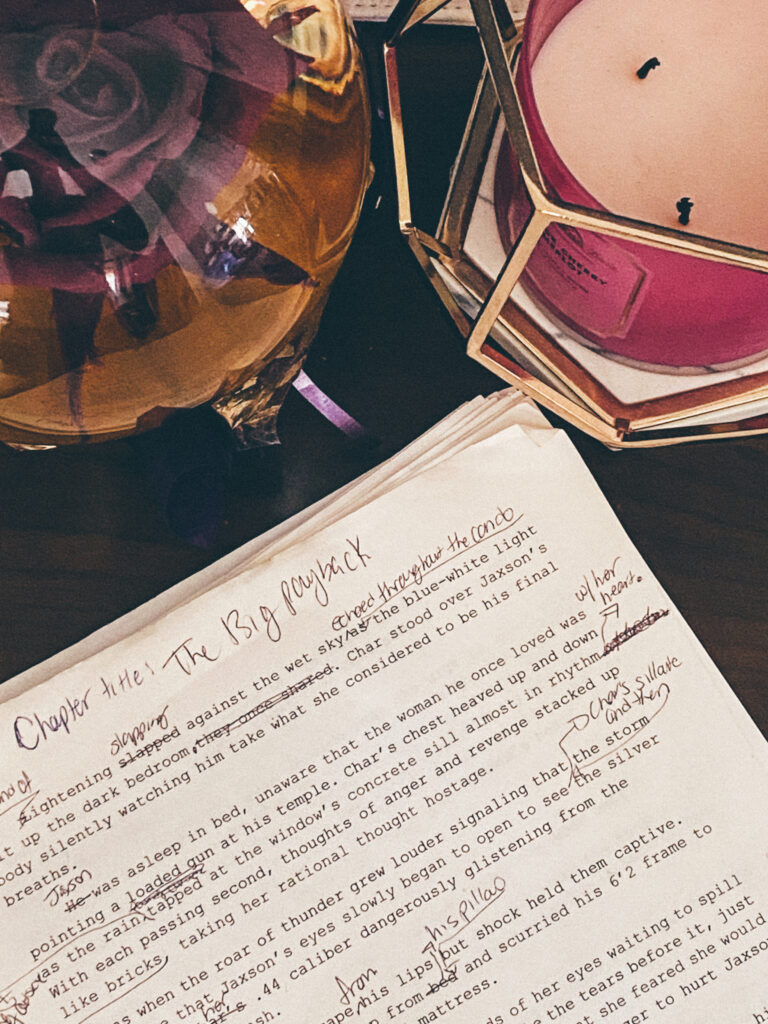 CHERRY
Chapter title: The Big payback
echoed throughout the condo
slapping
Lightening slapped against the wet sky/as the blue-white light
it up the dark bedroom, they once shared. Char stood over Jaxson's
body silently watching him take what she considered to be his final
breaths.
w/her
heart.
Jaxson
He was asleep in bed, unaware that the woman he once loved was
pointing a loaded gun at his temple. Char's chest heaved up and down
as the rain tapped at the window's concrete sill almost in rhythm
With each passing second, thoughts of anger and revenge stacked up
like bricks, taking her rational thought hostage.
Char's
and then
s when the roar of thunder grew louder signaling that the storm
that Jaxson's eyes slowly began to open to see the silver
her
.44 caliber dangerously glistening from the
his
from
his lips but shock held them captive.
from bed and scurried his 6'2 frame to
mattress.
ds of her eyes waiting to spill
e the tears before it, just
she feared she would
ger to hurt Jaxso